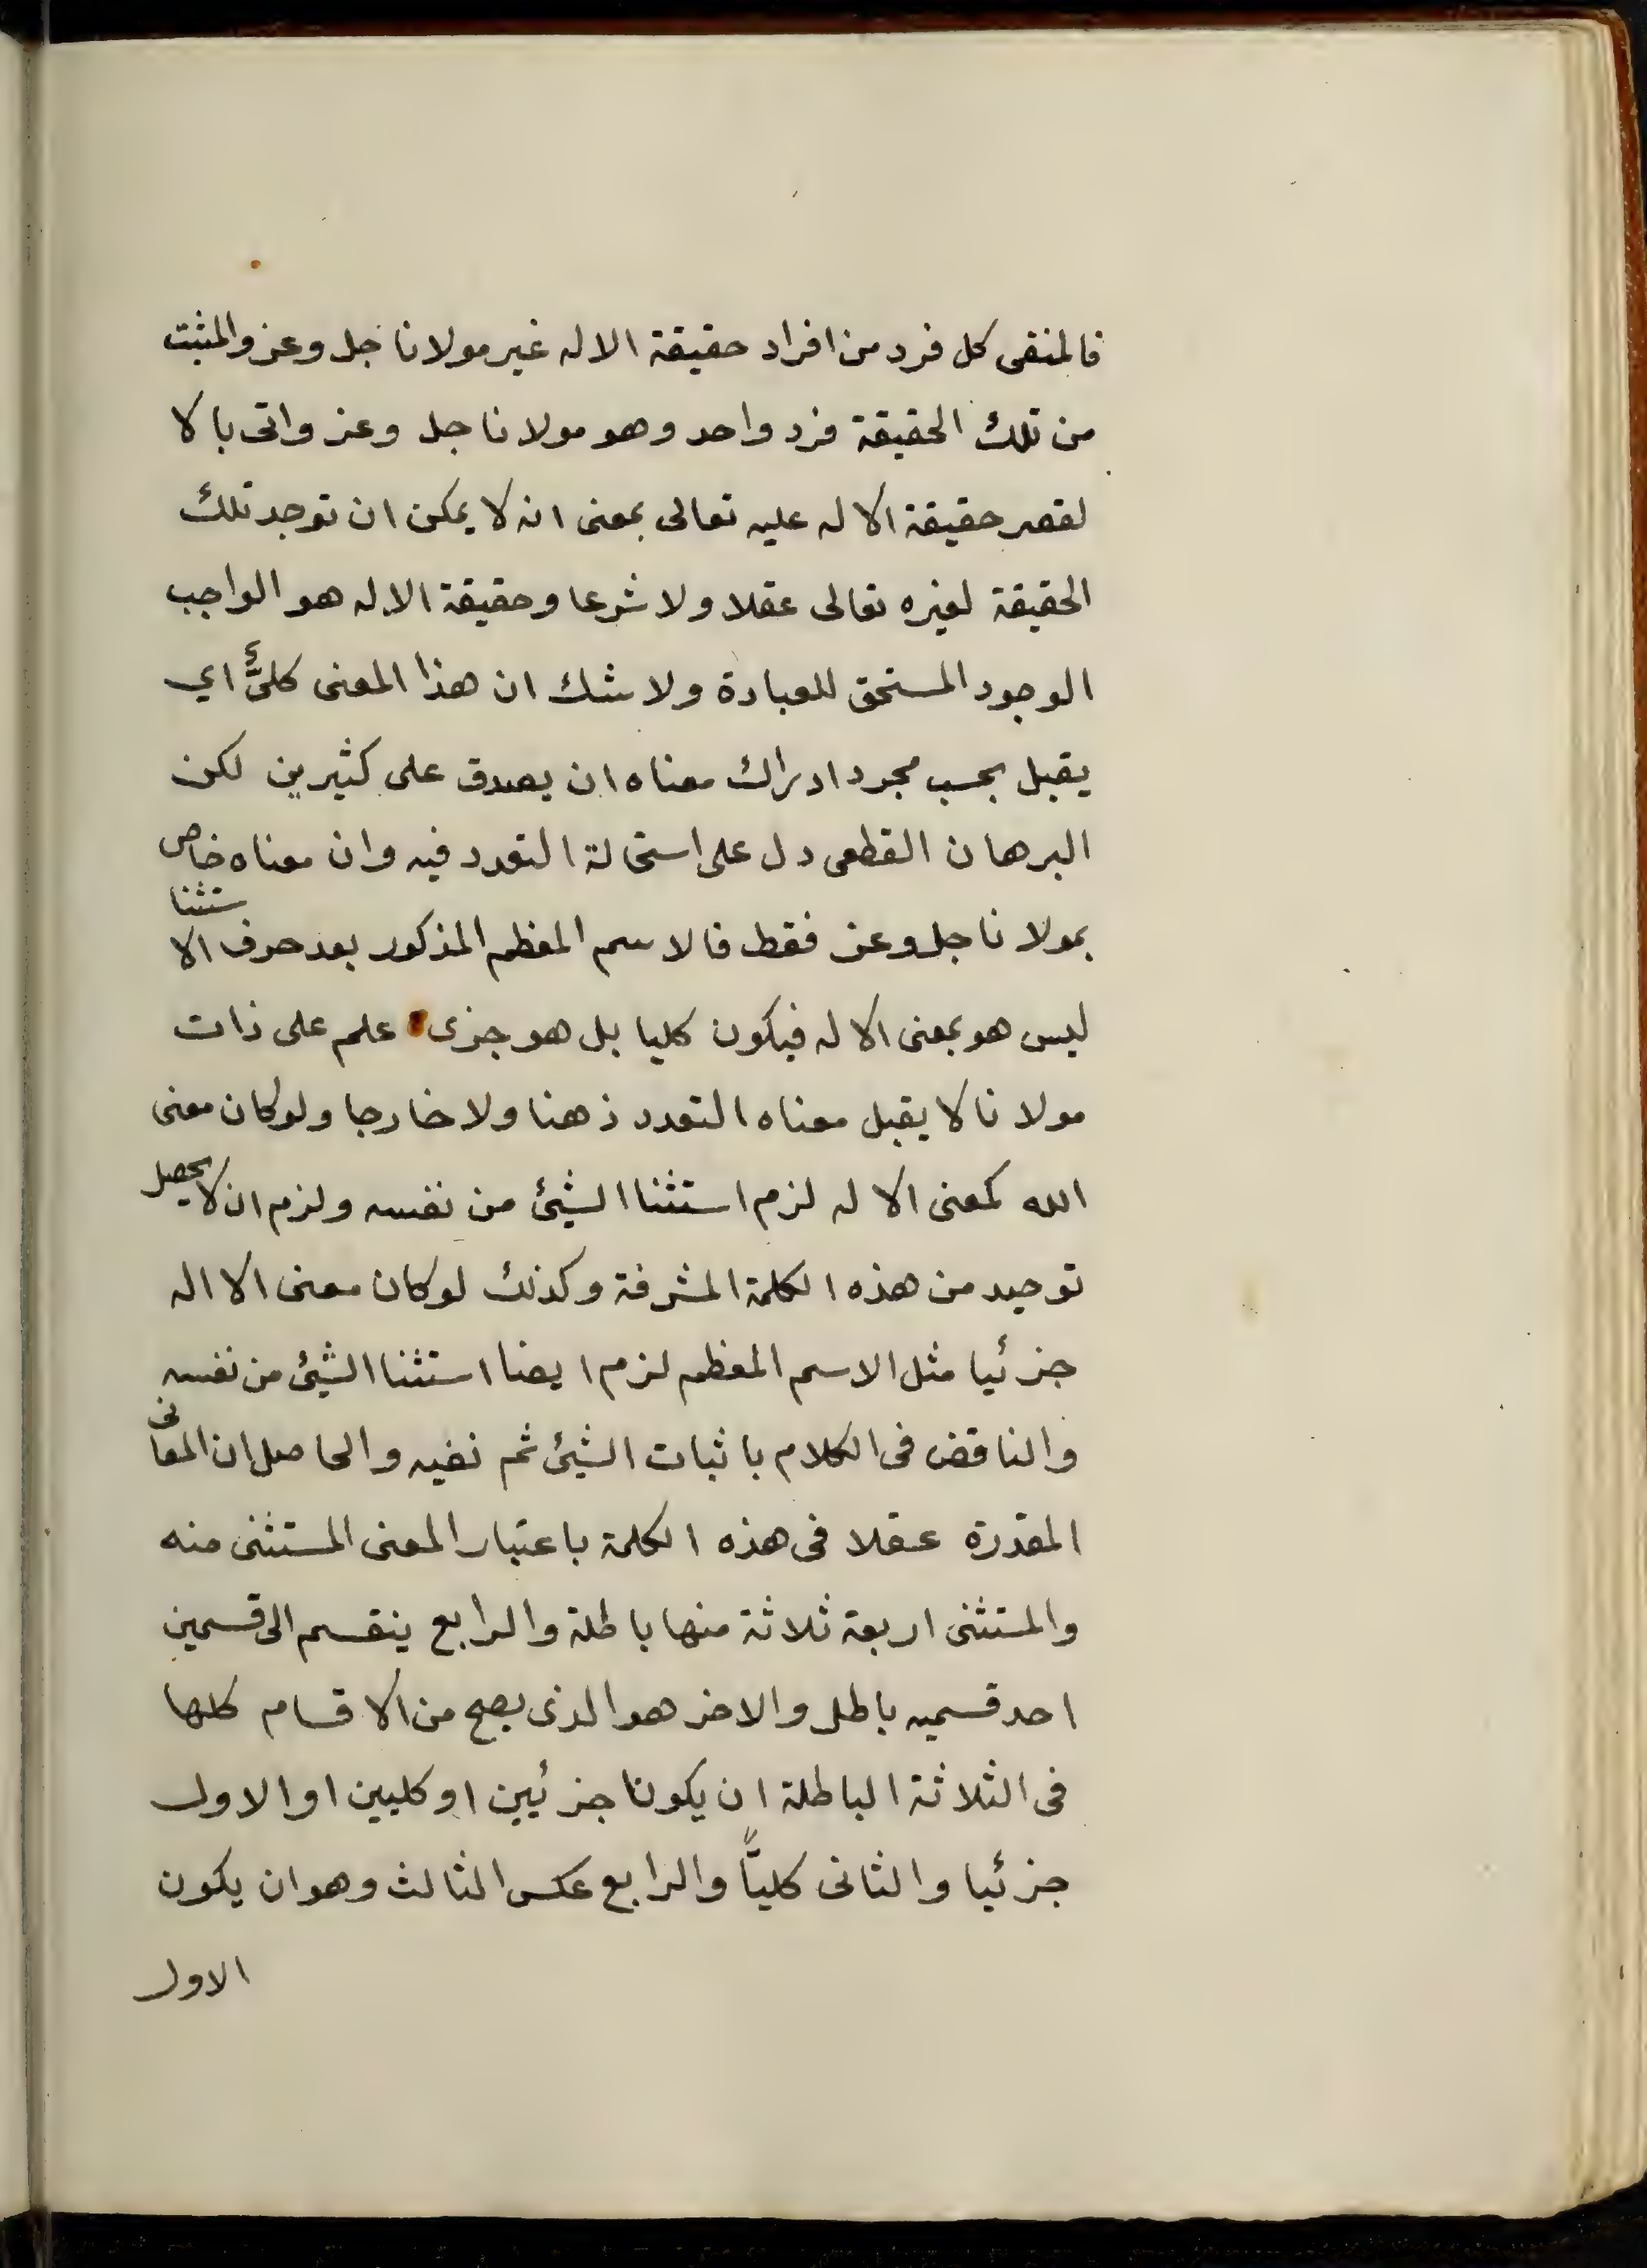 فالمنفى كل فرد من افراد حقيقة الاله غير مولانا جل وعز والمثبت
من تلك الحقيقة فرد واحد وهو مولانا جل وعز واتى بالا
لقصر حقيقة الاله عليه تعالى بمعنى انه لا يمكن ان توجد تلك
الحقيقة لغيره تعالى عقلا ولا شرعا وحقيقة الاله هو الواجب
الوجود المستحق للعبادة ولا شك ان هذا المعنى كلىٌّ اي
يقبل بحسب مجرد ادراك معناه ان يصدق على كثيرين لكن
البرهان القطعى دل على استحالة التعدد فيه وان معناه خاص
بمولانا جل وعز فقط فالاسم المعظم المذكور بعد حرف الاستثنا
ليس هو بمعنى الاله فيكون كليا بل هو جزى علم على ذات
مولانا لا يقبل معناه التعدد ذهنا ولا خارجا ولو كان معنى
الله كمعنى الاله لزم استثنا الشيئ من نفسه ولزم ان لا يحصل
توحيد من هذه الكلمة المشرفة وكذلك لو كان معنى الا اله
جزئيا مثل الاسم المعظم لزم ايضا استثنا الشيئ من نفسه
والناقض فى الكلام باثبات الشيئ ثم نفيه والحاصل ان المعانى
المقدرة عقلا فى هذه الكلمة باعتبار المعنى المستثنى منه
والمستثنى اربعة ثلاثة منها باطلة والرابع ينقسم الى قسمين
احد قسميه باطل والاخر هو الذى يصح من الاقسام كلها
فى الثلاثة الباطلة ان يكونا جزئيين او كليين او الاول
جزئيا والثانى كليًّا والرابع عكس الثالث وهو ان يكون
الاول